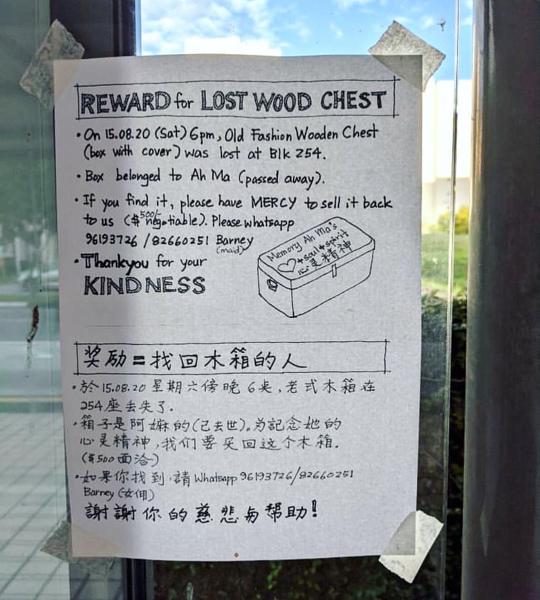 REWARD for LOST WOOD CHEST
• On 15.08.20 (Sat) 6pm, Old Fashion Wooden Chest
(box with cover) was lost at Blk 254.
• Box belonged to Ah Ma (passed away).
• If you find it, please have MERCY to sell it back
to us ($500/- negotiable). Please whatsapp
96193726 / 82660251 Barney
(maid)
• Thankyou for your
KINDNESS
Memory Ah Ma's
♡ + soul + spirit
心灵精神
奖励 = 找回木箱的人
• 於 15.08.20 星期六傍晚 6点, 老式木箱在
254座丢失了.
• 箱子是阿嫲的(已去世).为記念她的
心灵精神,我们要买回这个木箱.
($500 面洽)
• 如果你找到,請 Whatsapp 96193726/82660251
Barney (女佣)
謝謝你的慈悲与帮助!